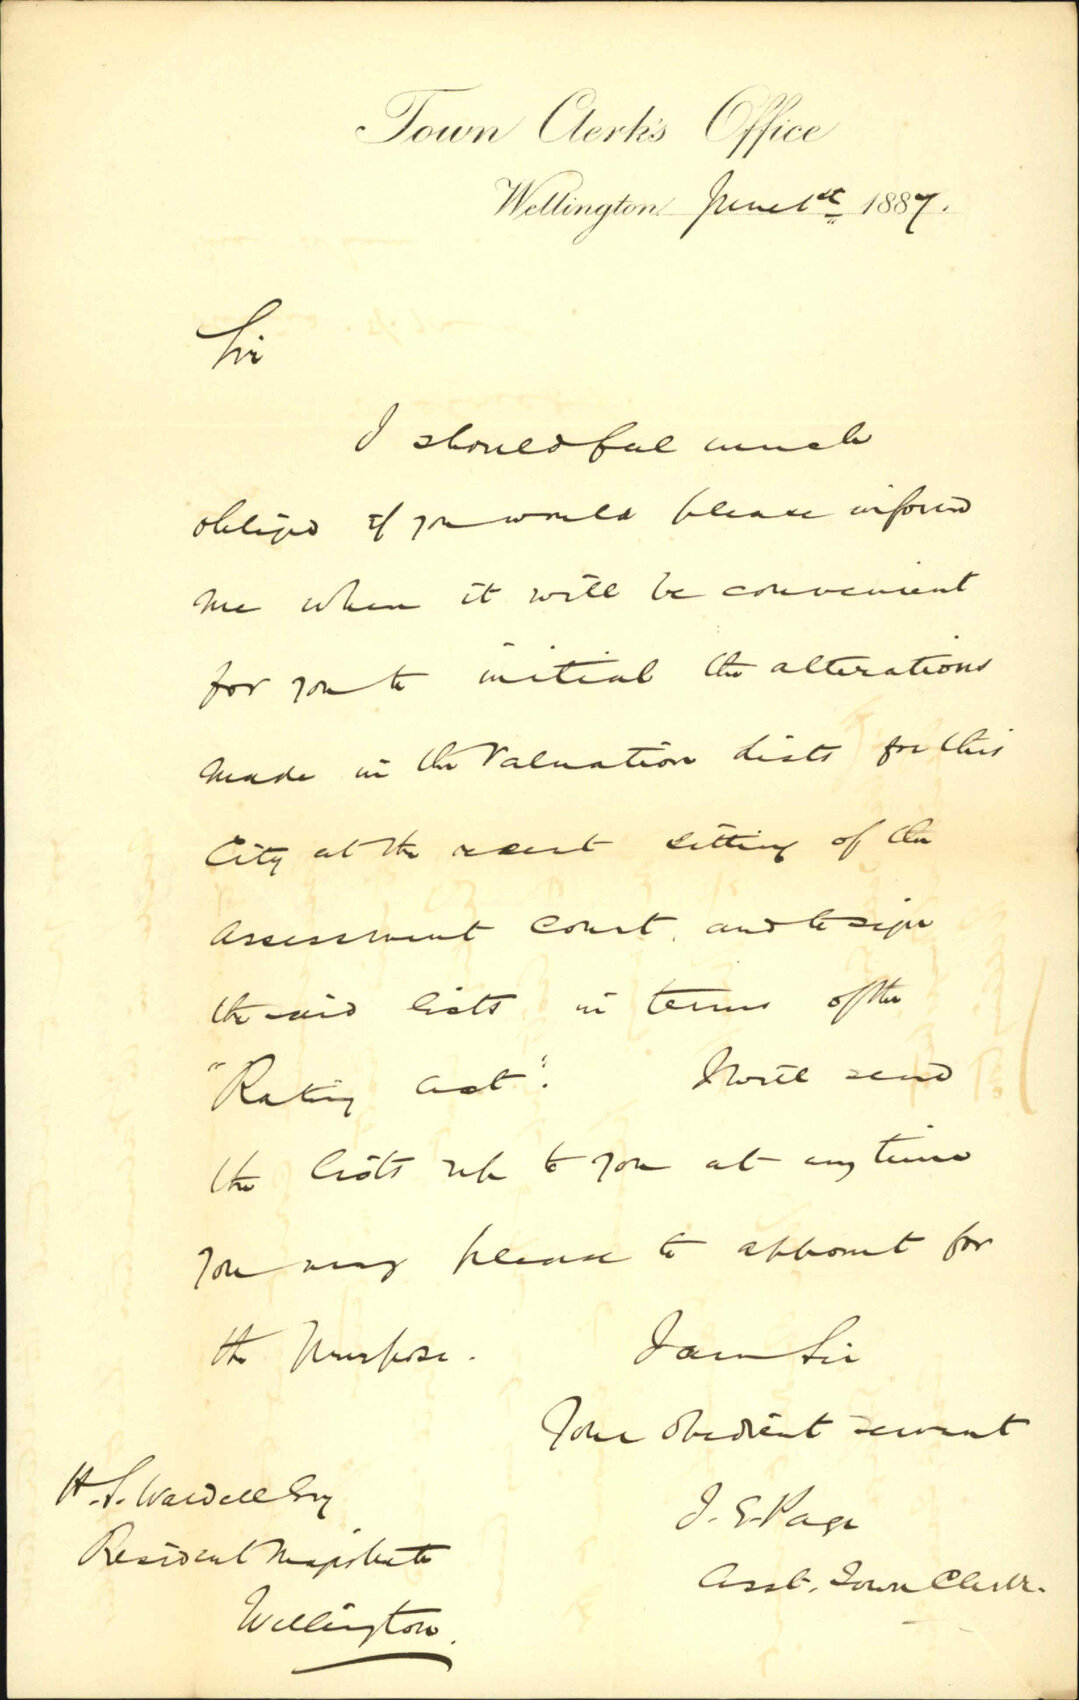 Town Clerk's Office
Wellington June 1st 1887.
Sir
I should feel much
obliged if you would please inform
me when it will be convenient
for you to initial the alterations
made in the Valuation Lists for this
City at the recent sitting of the
Assessment Court, and to sign
the said lists in terms of the
"Rating Act". I will send
the lists up to you at any time
you may please to appoint for
the purpose.
I am Sir
Your obedient servant
J. E. Page
Asst. Town Clerk.
H. S. Wardell Esq
Resident Magistrate
Wellington.